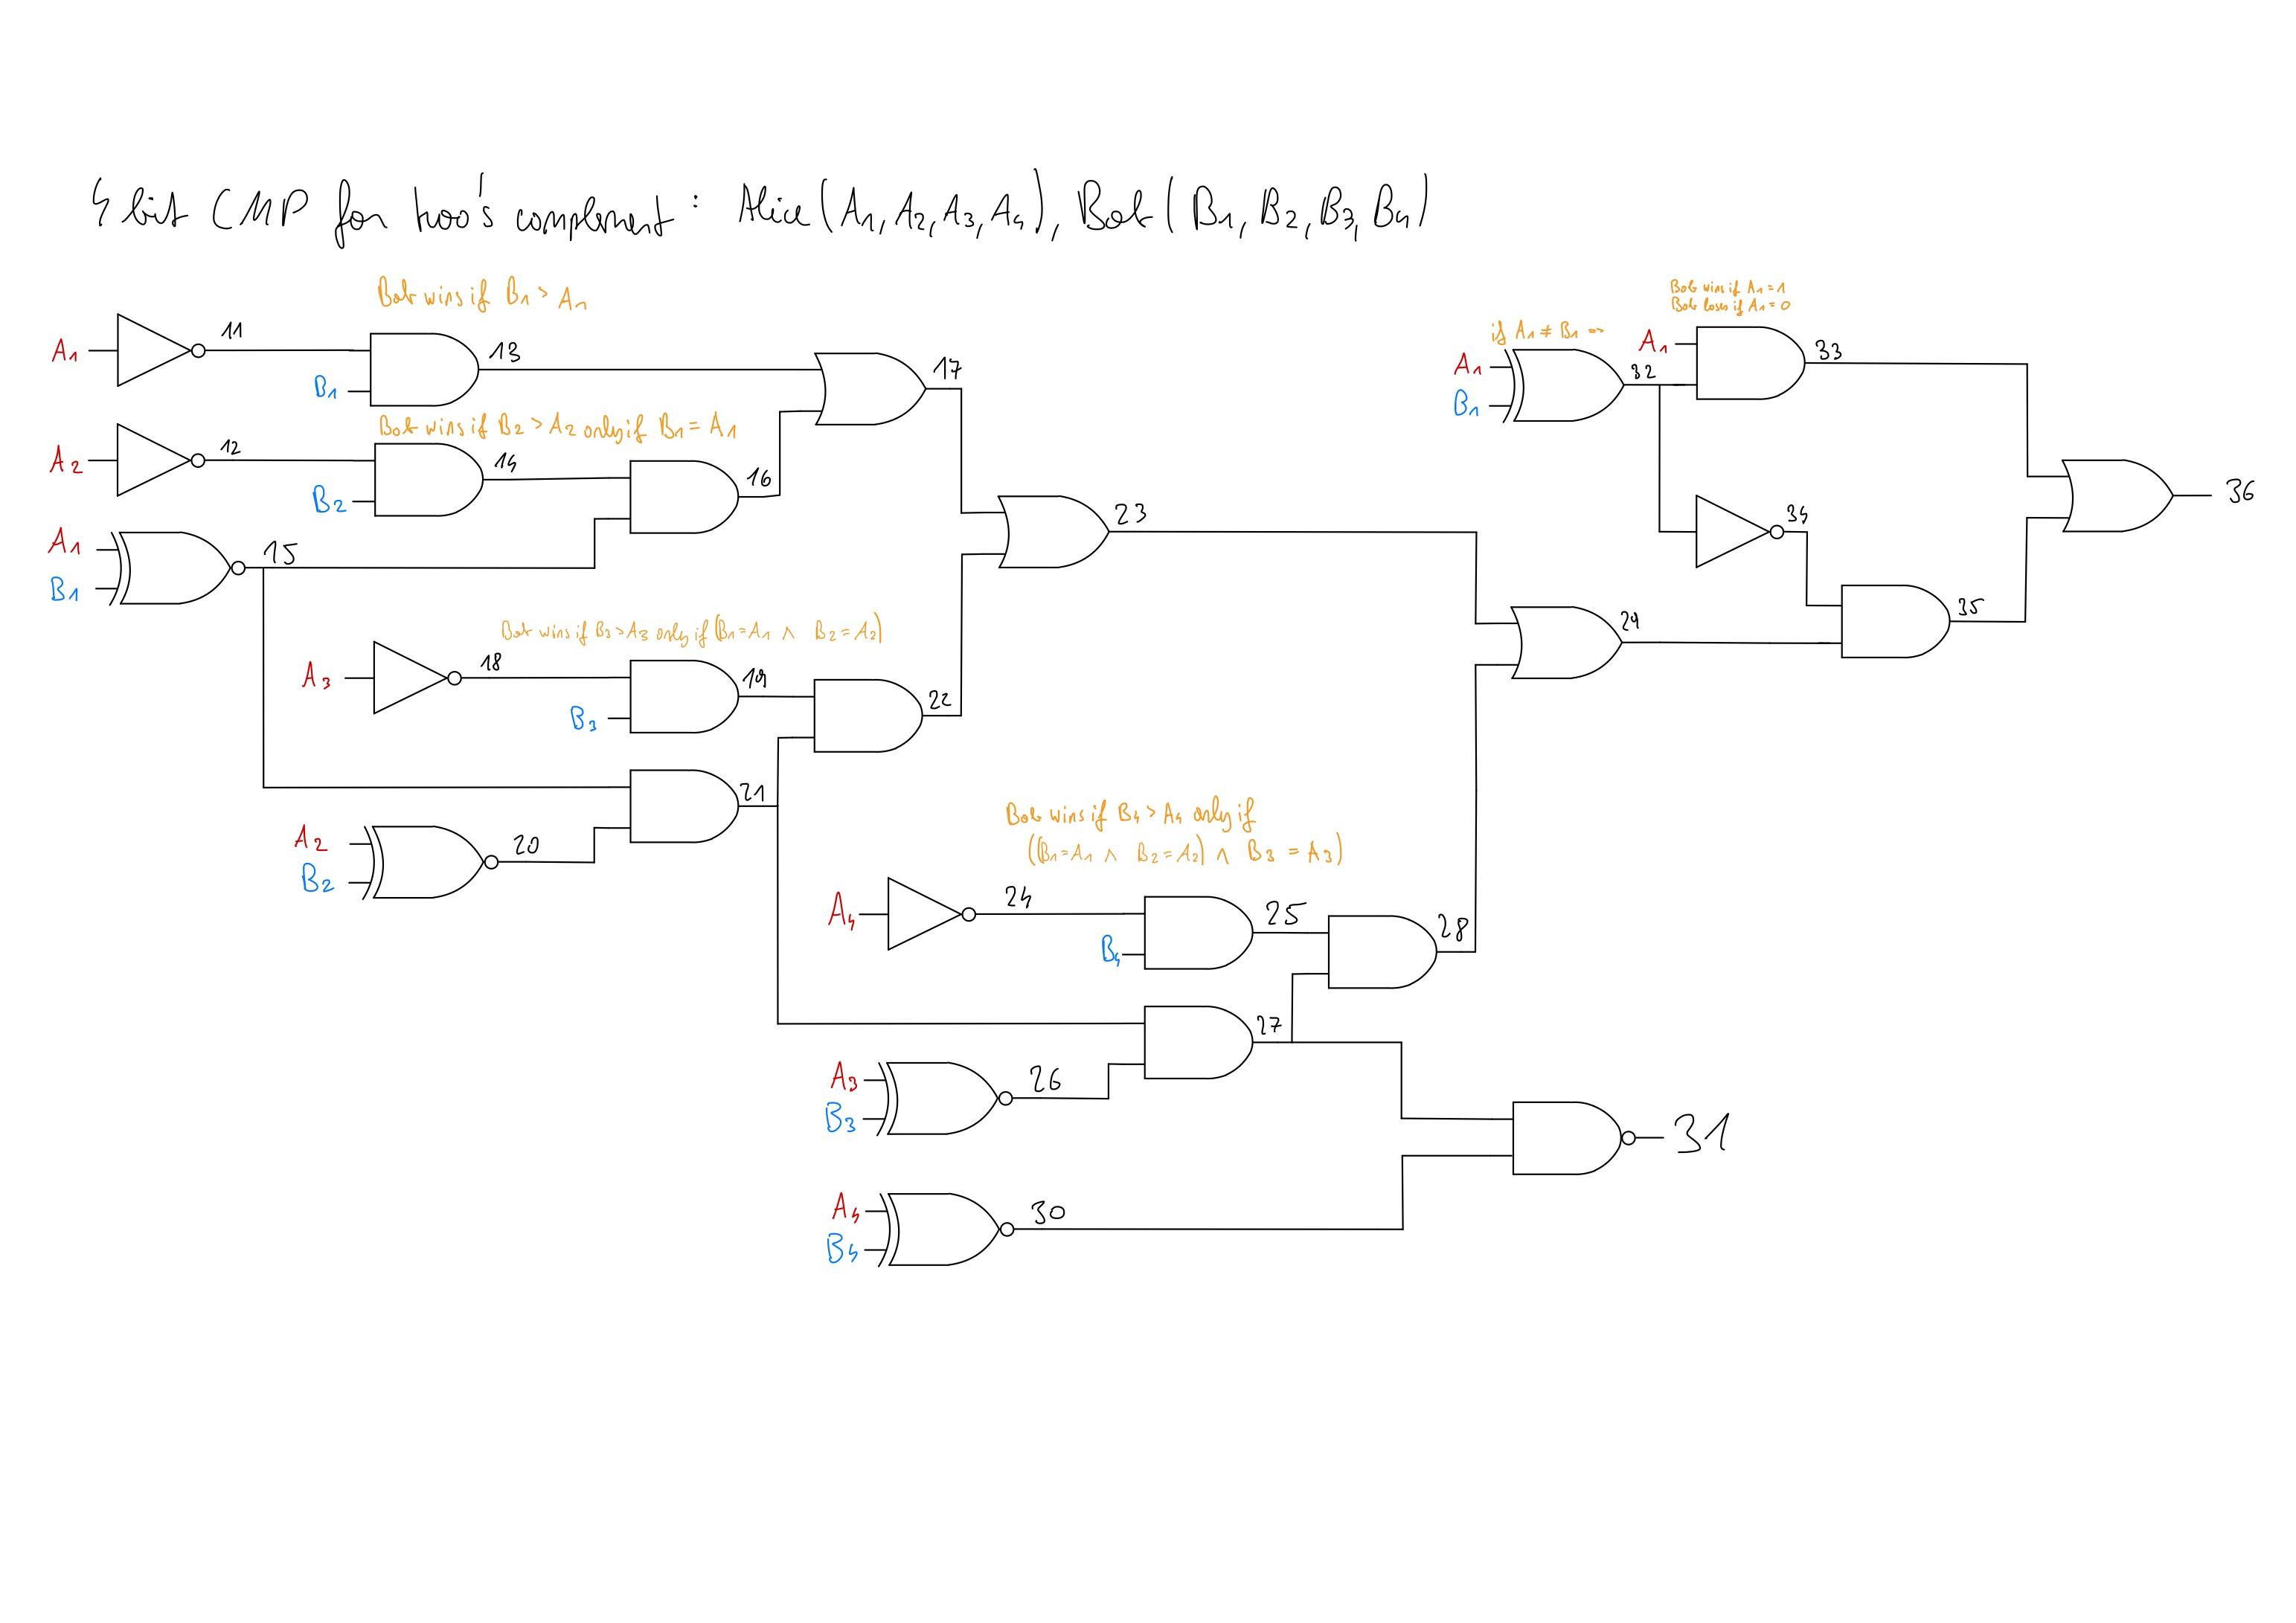 4 bit CMP for two's complement : Alice (A1, A2, A3, A4), Bob (B1, B2, B3, B4)
Bob wins if B1 > A1
A1
11
B1
13
17
Bob wins if B2 > A2 only if B1 = A1
A2
12
B2
14
16
A1
B1
15
23
Bob wins if B3 > A3 only if (B1 = A1 ∧ B2 = A2)
A3
18
B3
19
22
21
A2
B2
20
Bob wins if B4 > A4 only if
((B1 = A1 ∧ B2 = A2) ∧ B3 = A3)
A4
24
B4
25
28
27
A3
B3
26
31
A4
B4
30
Bob wins if A1 = 1
Bob loses if A1 = 0
if A1 ≠ B1 =>
A1
B1
32
A1
33
34
29
35
36